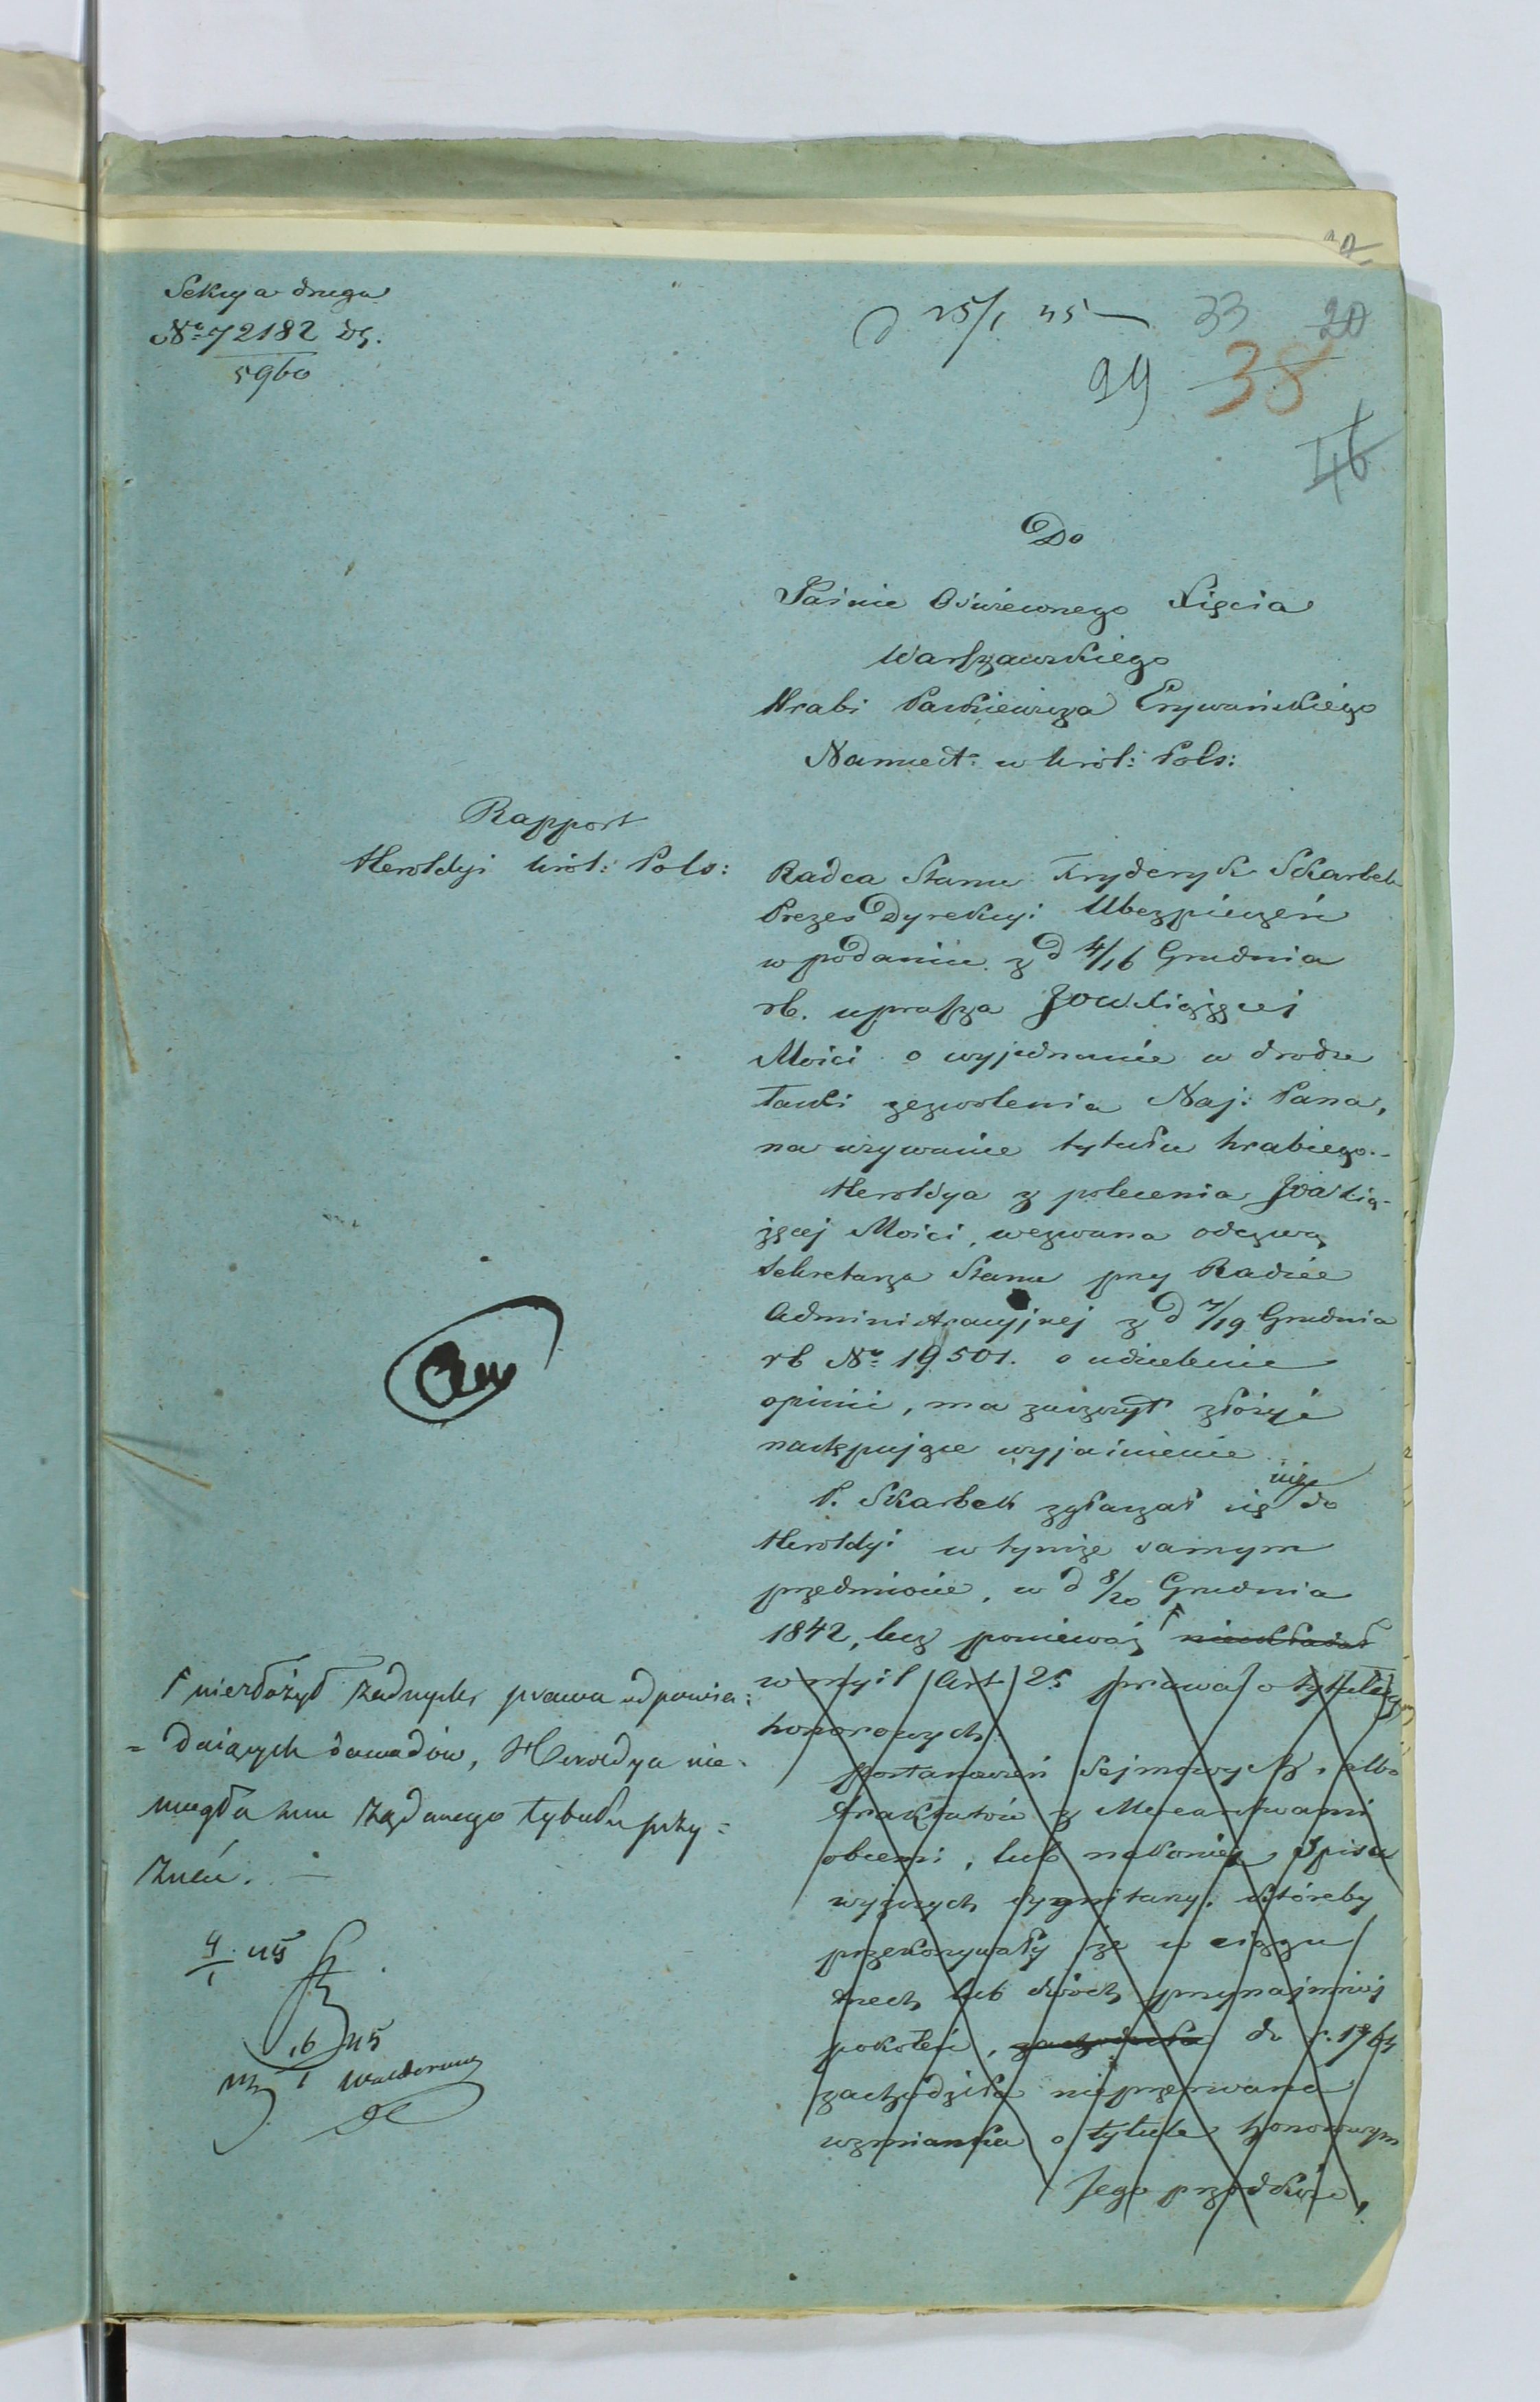 Sekcya druga
No 72182 dz.
5960
d 25/1 45
33
20
99
38
46
Do
Jaśnie Oświeconego Xięcia
Warszawskiego
Hrabi Paskiewicza Erywańskiego
Namiest: w Król: Pols:
Rapport
Heroldyi Król: Pols:
Radca Stanu Fryderyk Skarbek
Prezes Dyrekcyi Ubezpieczeń
w podaniu z d 4/16 Grudnia
rb. uprasza JOW. Xiążęcej
Mości o wyjednanie w drodze
łaski zezwolenia Naj: Pana,
na używanie tytułu hrabiego.-
Heroldya z polecenia JOW Xią-
żęcej Mości, wezwana odezwą
Sekretarza Stanu przy Radzie
Administracyjnej z d 7/19 Grudnia
rb No 19501. o udzielenie
opinii, ma zaszczyt złożyć
następujące wyjaśnienie
P. Skarbek zgłaszał się już do
Heroldyi w tymże samym
przedmiocie, w d 8/20 Grudnia
1842, lecz ponieważ nieskładał
w myśl Art 25 prawa o tytułach
honorowych
postanowień Sejmowych, albo
traktatów z Mocarstwami
obcemi, lub nakoniec Spisu
wyższych dygnitarzy, któreby
przekonywały że w ciągu
trzech lub dwóch przynajmniej
pokoleń, do r. 1764
zachodziła nieprzerwana
wzmianka o tytule honorowym
Jego przodków,
niezłożył żadnych, prawu odpowia-
= dających dowodów, Heroldya nie-
mogła mu żądanego tytułu przy=
znać. —
4/1 45
16/1 45